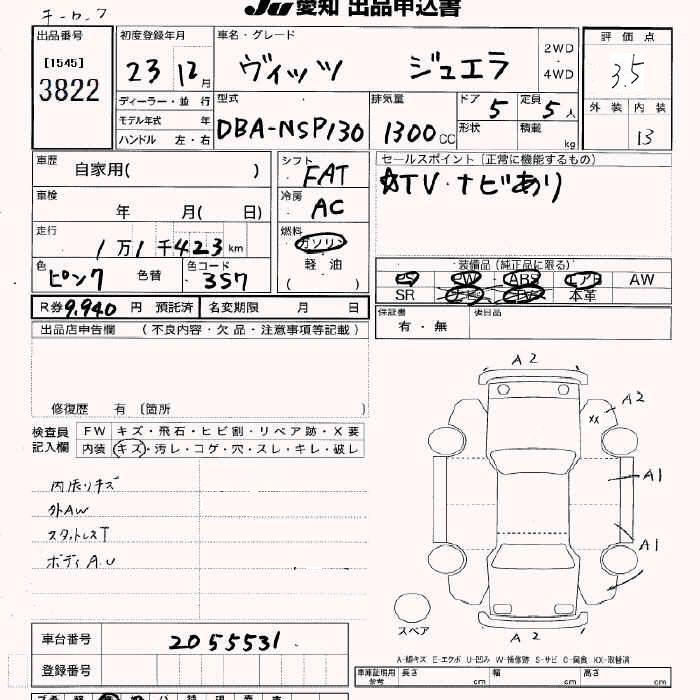 チーロック
Ju 愛知 出品申込書
出品番号
[1545]
3822
初度登録年月
23 12月
車名・グレード
ヴィッツ ジュエラ
2WD
・
4WD
評価点
3.5
ディーラー・並行
モデル年式 年
ハンドル 左・右
型式
DBA-NSP130
排気量
1300 CC
ドア 5
定員 5人
形状
積載 kg
外装 内装
13
車歴
自家用( )
車検
年 月( 日)
走行
1万1千423km
色
ピンク 色替
色コード
3S7
シフト
FAT
冷房
AC
燃料
ガソリン
・
軽油
( )
セールスポイント(正常に機能するもの)
☆TV・ナビあり
装備品(純正品に限る)
PS PW ABS エアB AW
SR ナビ TV 本革
R券 9,940 円 預託済
名変期限 月 日
保証書
有・無
後日品
出品店申告欄 (不良内容・欠品・注意事項等記載)
修復歴 有 〔箇所 〕
検査員
記入欄
FW キズ・飛石・ヒビ割・リペア跡・X要
内装 キズ・汚レ・コゲ・穴・スレ・キレ・破レ
内張りキズ
外AW
スタットレスT
ボディA.U
A2
XX
A2
A1
A1
A2
スペア
A-線キズ E-エクボ U-凹み W-補修跡 S-サビ C-腐食 XX-取替済
車台番号
2055531
登録番号
車庫証明用
参考
長さ cm
幅 cm
高さ cm